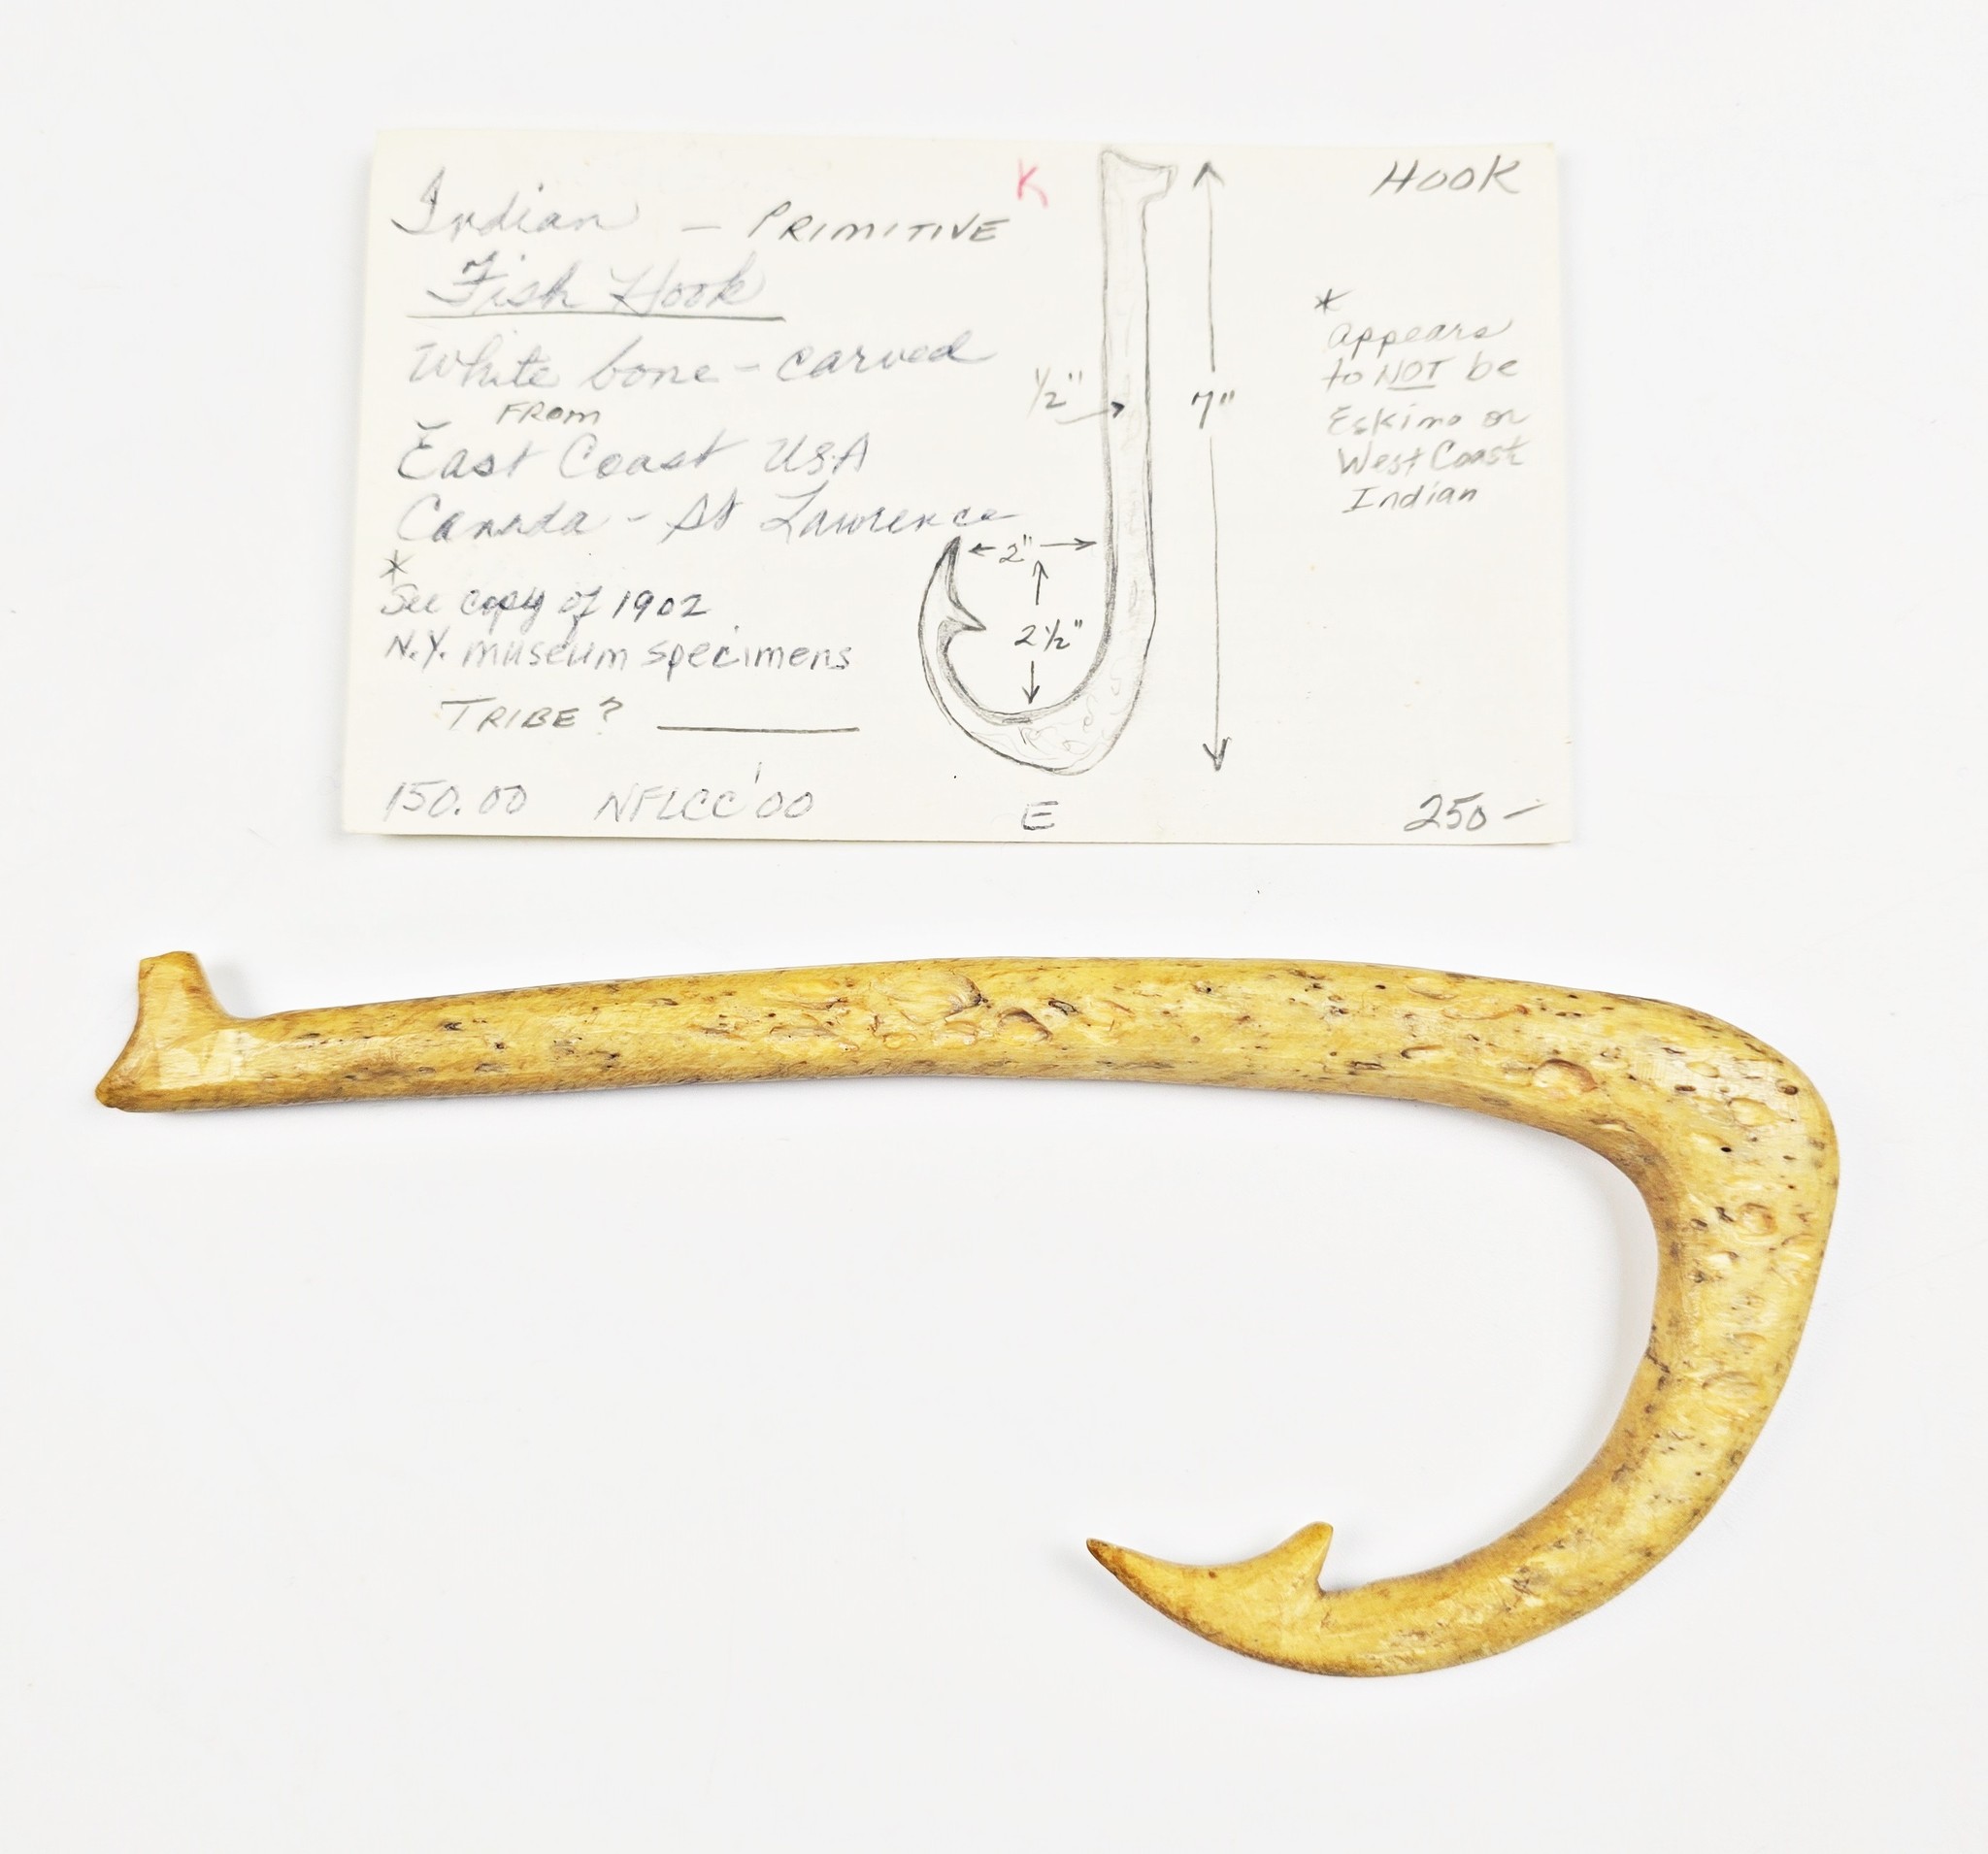 Indian – PRIMITIVE
Fish Hook
White bone – carved
FROM
East Coast USA
Canada – St Lawrence
*
See copy of 1902
N.Y. museum specimens
TRIBE?
150.00 NFLCC '00
K
1/2"
7"
2"
2 1/2"
E
HOOK
*
Appears
to NOT be
Eskimo or
West Coast
Indian
250–